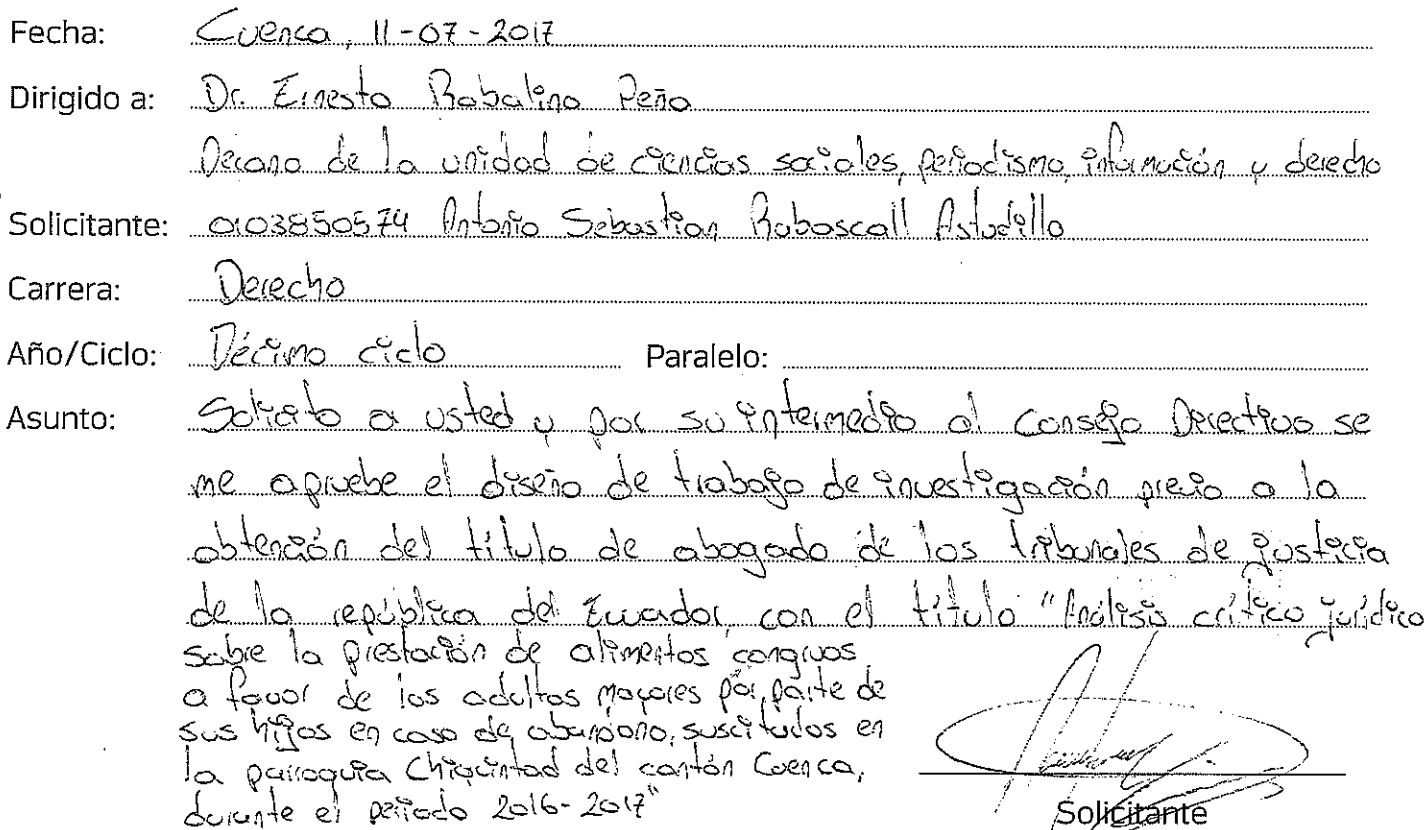 Fecha: Cuenca, 11-07-2017
Dirigido a: Dr. Ernesto Robalino Peña
Decano de la unidad de ciencias sociales, periodismo, información y derecho
Solicitante: 0103850574 Antonio Sebastian Rubascall Astudillo
Carrera: Derecho
Año/Ciclo: Décimo ciclo Paralelo:
Asunto: Solicito a usted y por su intermedio al Consejo Directivo se
me apruebe el diseño de trabajo de investigación previo a la
obtención del título de abogado de los tribunales de justicia
de la república del Ecuador con el título "Análisis crítico jurídico
sobre la prestación de alimentos congruos
a favor de los adultos mayores por parte de
sus hijos en caso de abandono, suscitados en
la parroquia Chiquintad del cantón Cuenca,
durante el periodo 2016-2017"
Solicitante